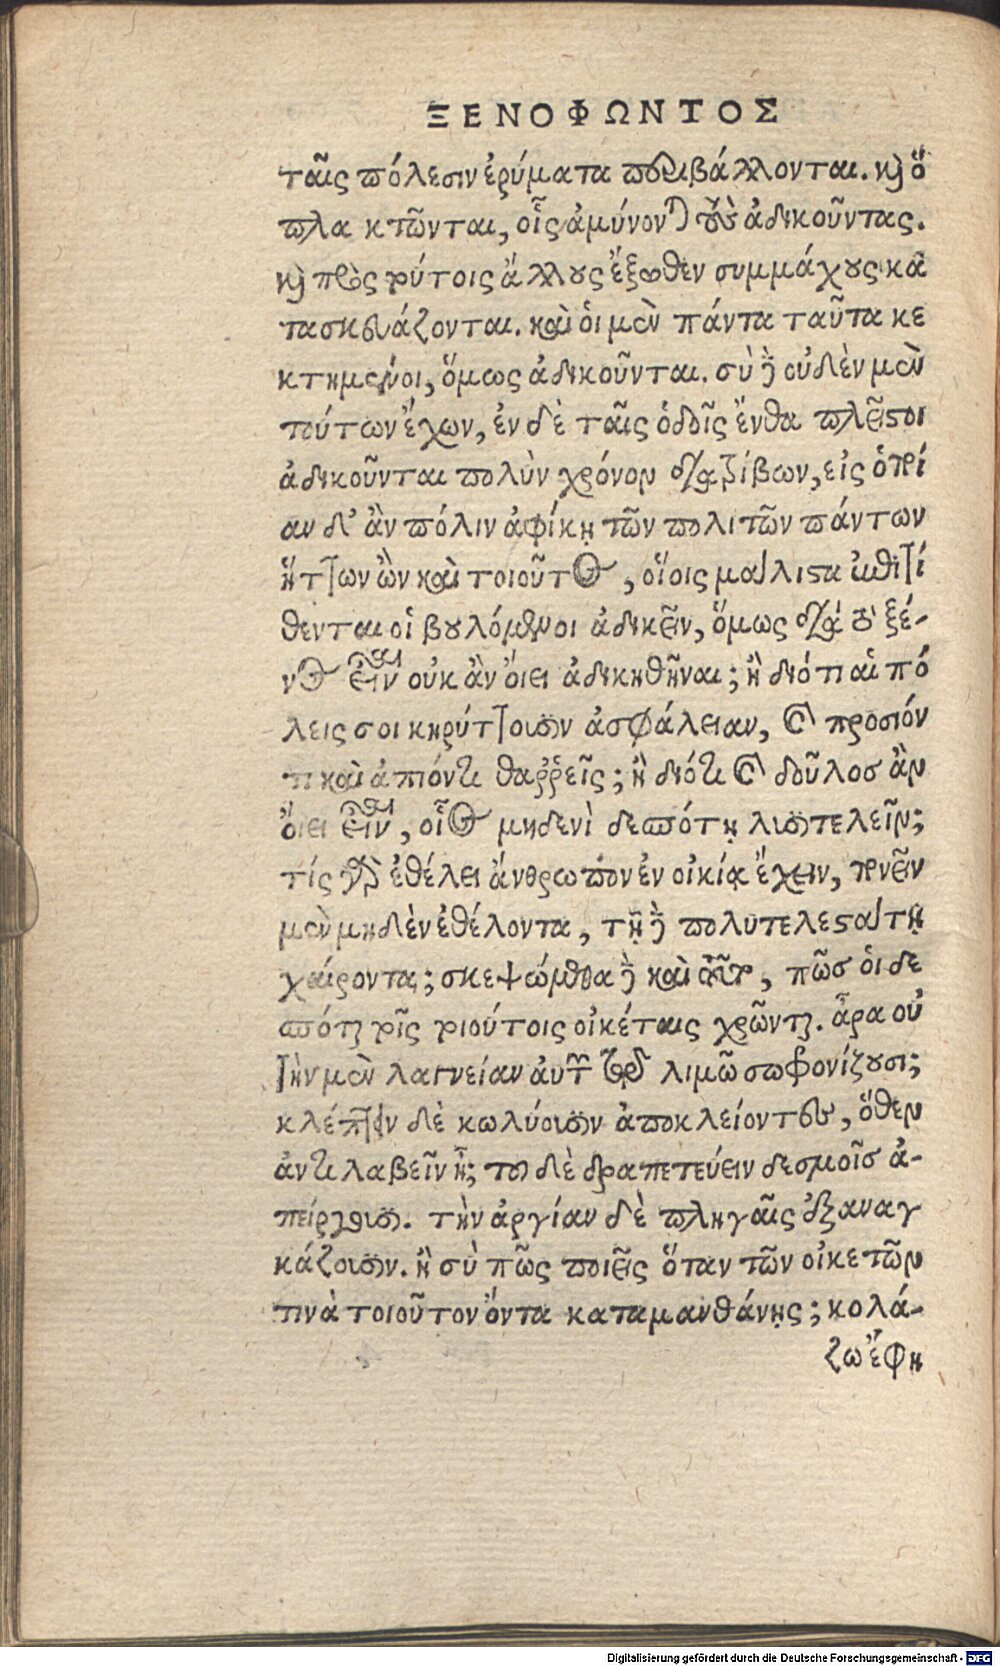 ΞΕΝΟΦΩΝΤΟΣ
ταῖς πόλεσιν ἐρύματα περιβάλλονται. καὶ ὅ
πλα κτῶνται, οἷς ἀμύνονται τοὺς ἀδικοῦντας.
καὶ πρὸς τούτοις ἄλλους ἔξωθεν συμμάχους κα
τασκευάζονται. καὶ οἱ μὲν πάντα ταῦτα κε
κτημένοι, ὅμως ἀδικοῦνται. σὺ δὲ οὐδὲν μὲν
τούτων ἔχων, ἐν δὲ ταῖς ὁδοῖς ἔνθα πλεῖστοι
ἀδικοῦνται πολὺν χρόνον διατρίβων, εἰς ὁποί
αν δ' ἂν πόλιν ἀφίκῃ τῶν πολιτῶν πάντων
ἥττων ὢν καὶ τοιοῦτος, οἵοις μάλιστα ἐπιτί
θενται οἱ βουλόμενοι ἀδικεῖν, ὅμως διὰ τὸ ξέ-
νος εἶναι οὐκ ἂν οἴει ἀδικηθῆναι; ἢ διότι αἱ πό
λεις σοι κηρύττουσιν ἀσφάλειαν, καὶ προσιόν
τι καὶ ἀπιόντι θαῤῥεῖς; ἢ διότι καὶ δοῦλος ἂν
οἴει εἶναι, οἷος μηδενὶ δεσπότῃ λυσιτελεῖν;
τίς γὰρ ἐθέλει ἄνθρωπον ἐν οἰκίᾳ ἔχειν, πονεῖν
μὲν μηδὲν ἐθέλοντα, τῇ δὲ πολυτελεστάτῃ
χαίροντα; σκεψώμεθα δὲ καὶ τοῦτο, πῶς οἱ δε
σπόται τοῖς τοιούτοις οἰκέταις χρῶνται. ἆρα οὐ
τὴν μὲν λαγνείαν αὐτῶν τῷ λιμῷ σωφρονίζουσι;
κλέπτειν δὲ κωλύουσιν ἀποκλείοντες, ὅθεν
ἄν τι λαβεῖν ᾖ; τοῦ δὲ δραπετεύειν δεσμοῖς ἀ-
πείργουσι. τὴν ἀργίαν δὲ πληγαῖς ἐξαναγ
κάζουσιν. ἢ σὺ πῶς ποιεῖς ὅταν τῶν οἰκετῶν
τινὰ τοιοῦτον ὄντα καταμανθάνῃς; κολά-
ζω ἔφη
Digitalisierung gefördert durch die Deutsche Forschungsgemeinschaft - DFG